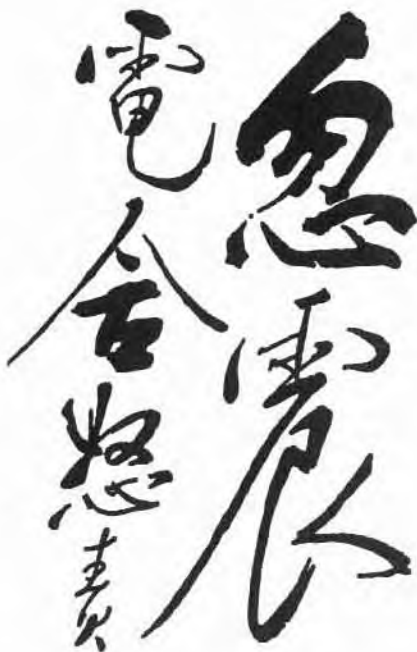 忽震
電舍怒責